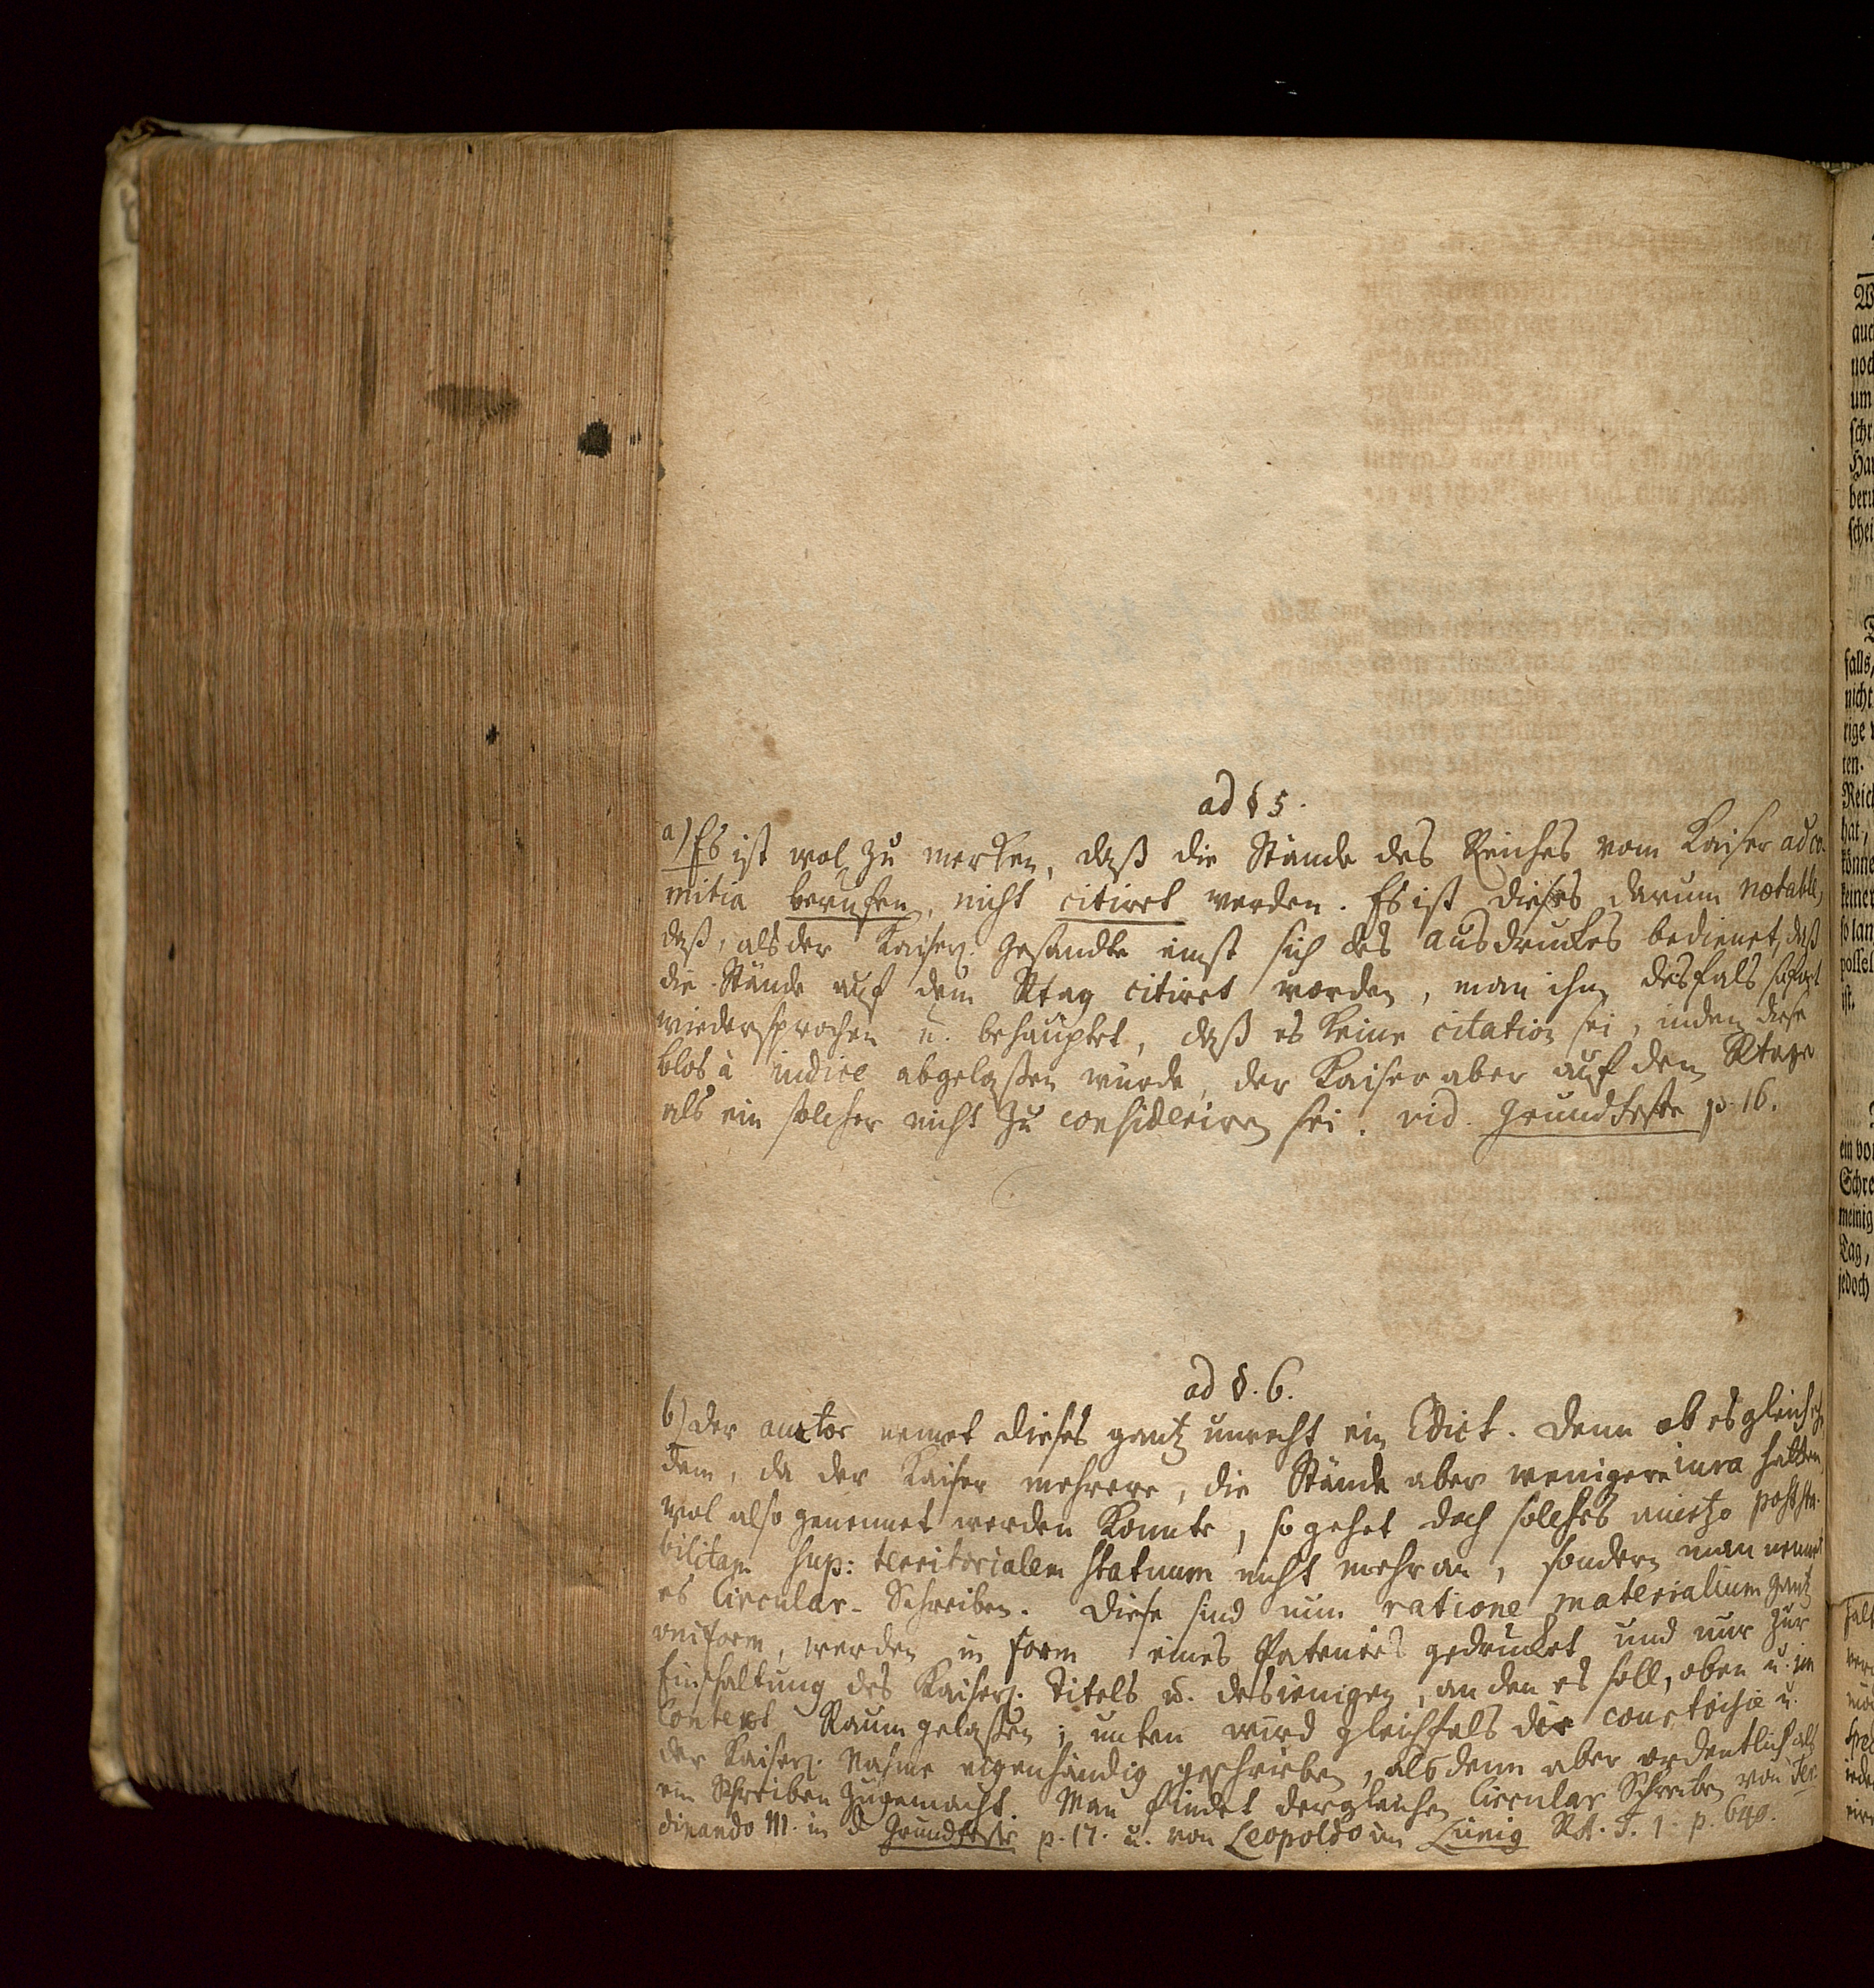 ad § 5.
a) Es ist wol zu merken, daß die Stände des Reiches vom Kaiser ad co-
mitia berufen, nicht citiret werden. Es ist dieses darum notable,
daß, als der Kaiserl. Gesandte einst sich des Ausdruckes bedienet, daß
die Stände auf dem Rtag citiret worden, man ihm desfals sofort
wiedersprochen u. behauptet, daß es keine citation sei, indem diese
blos à iudice abgelaßen würde, der Kaiser aber auf dem Rtage
als ein solcher nicht zu consideriren sei. vid. Grundfeste p. 16.
ad §. 6.
b) Der auctor nennet dieses gantz unrecht ein Edict. Denn ob es gleich
dem, da der Kaiser mehrere, die Stände aber wenigere iura hatten,
wol also genennet werden konnte, so gehet doch solches post sta-
bilitam sup: territorialem statuum nicht mehr an, sondern man nennet
es Circular-Schreiben. Diese sind nun ratione materialium gantz
uniform, werden in form eines Patentes gedrucket und nur zur
Einschaltung des Kaiserl. Titels u. desienigen, an den es soll, oben u. im
Context Raum gelaßen; unten wird gleichfals die courtoisie u.
der Kaiserl. Nahme eigenhändig geschrieben, als denn aber ordentlich als
ein Schreiben zugemacht. Man findet dergleichen Circular Schreiben von Fer-
dinando III. in d Grundfeste p. 17. u. von Leopoldo im Lünig RA. T. 1. p. 649.
W
auch
noch
um
schr
Han
beru
schei
falls,
nicht
rige
ten.
Reich
hat,
könne
keiner
so lan
possel
ist.
ein vor
Schre
meinig
Tag,
jedoch